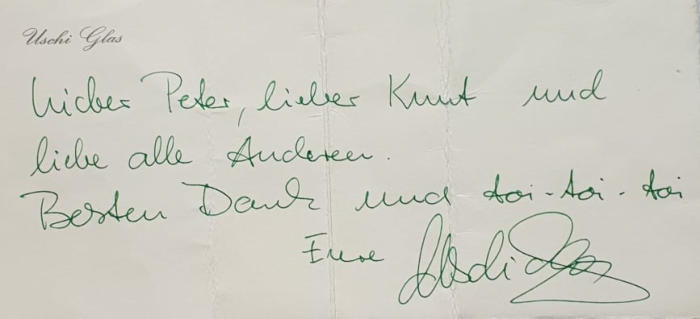 Uschi Glas
Lieber Peter, lieber Knut und
liebe alle Anderen.
Besten Dank und toi-toi-toi
Eure Uschi Glas